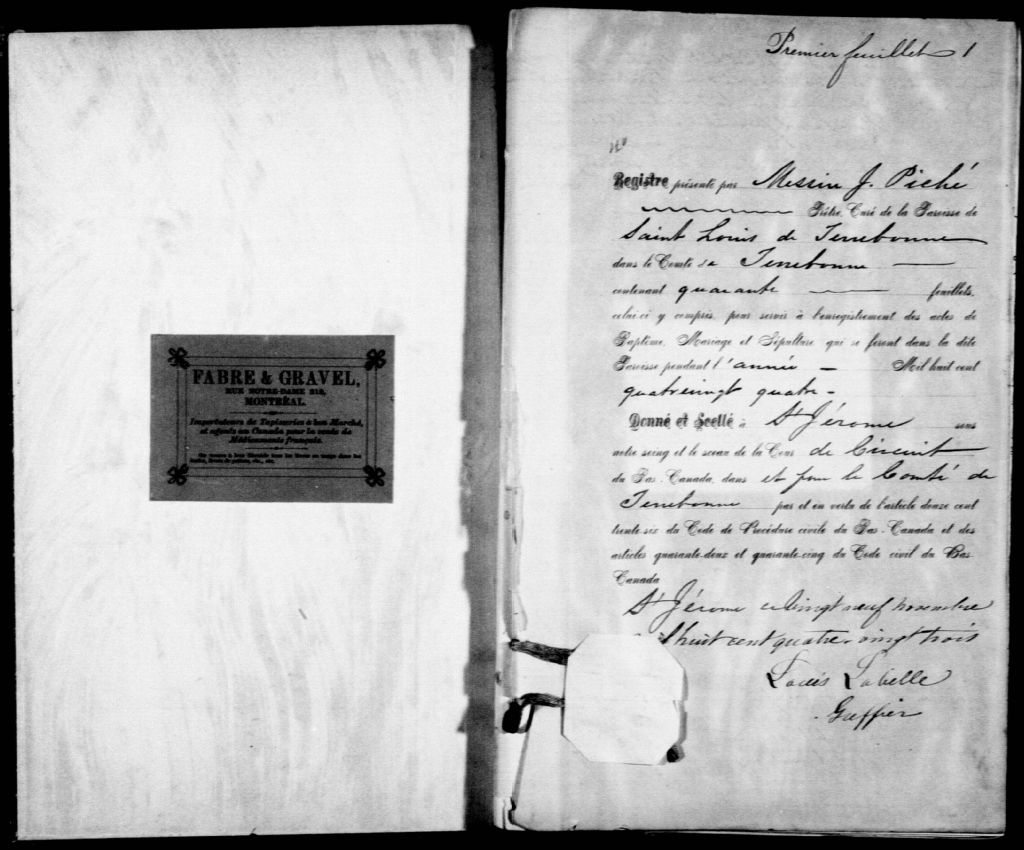 FABRE & GRAVEL,
RUE NOTRE-DAME 219,
MONTRÉAL.
Importateurs de Tapisseries à bon Marché,
et agents en Canada pour la vente de
Médicaments français.
On trouve à leur librairie tous les livres en usage dans les
Premier feuillet 1
Registre présenté par Messire J. Piché
Prêtre, Curé de la Paroisse de
Saint Louis de Terrebonne
dans le Comté de Terrebonne
contenant quarante feuillets,
celui-ci y compris, pour servir à l'enregistrement des actes de
Baptême, Mariage et Sépulture qui se feront dans la dite
Paroisse pendant l'année — Mil huit cent
quatrevingt quatre -
Donné et Scellé à St Jérome sous
notre seing et le sceau de la Cour de Circuit
du Bas-Canada, dans et pour le Comté de
Terrebonne par et en vertu de l'article douze cent
trente-six du Code de Procédure civile du Bas-Canada et des
articles quarante-deux et quarante-cinq du Code civil du Bas-
Canada
St Jérome ce vingt neuf novembre
huit cent quatre-vingt trois
Louis Labelle
Greffier